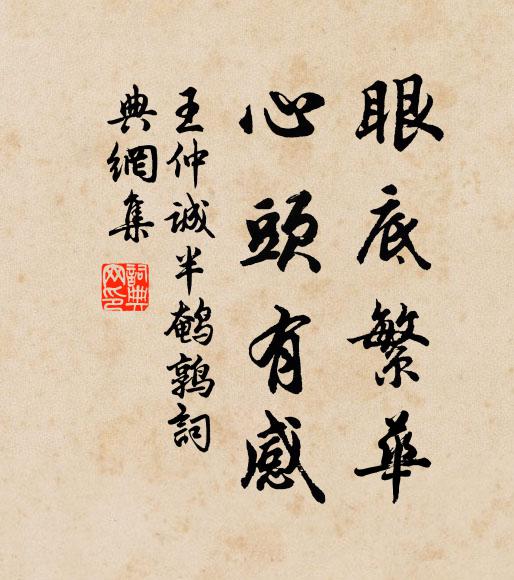 眼底繁華
心頭有感
王仲誠半鵪鶉詞
典網集
詞典
网印